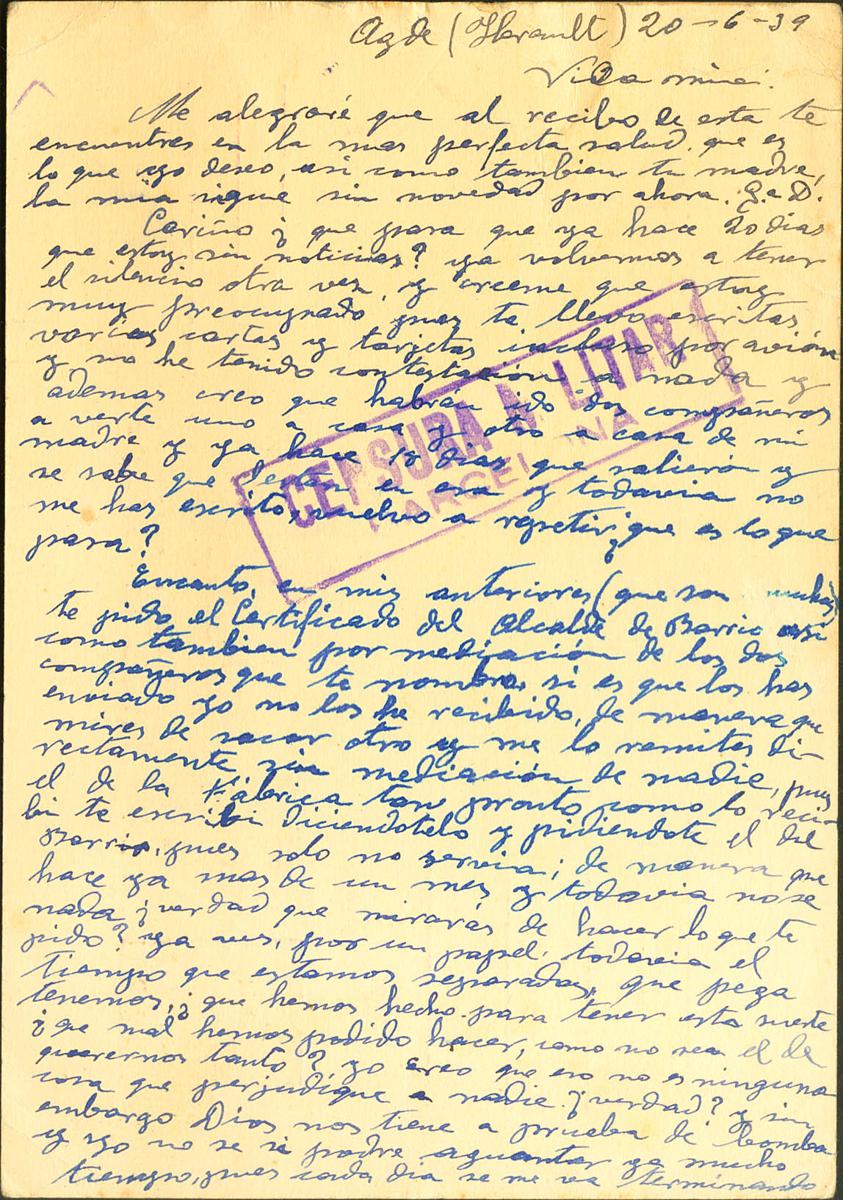 Agde (Herault) 20-6-39
Vida mia:
Me alegraré que al recibo de esta te
encuentres en la mas perfecta salud, que es
lo que yo deseo, asi como tambien tu madre,
la mia sigue sin novedad por ahora. G. a D.
Cariño ¿ que pasa que ya hace 20 dias
que estoy sin noticias? ya volvemos a tener
el silencio otra vez, y creeme que estoy
muy preocupado pues te llevo escritas
varias cartas y tarjetas incluso por avión
y no he tenido contestación a nada y
ademas creo que habran ido dos compañeros
a verte uno a casa y otro a casa de mi
madre y ya hace 18 dias que salieron y
se sabe que estan en esa y todavia no
me has escrito, vuelvo a repetir ¿ que es lo que
pasa?
Encanto, en mis anteriores (que son muchas)
te pido el Certificado del Alcalde de Barrio asi
como tambien por mediación de los dos
compañeros que te nombro, si es que los has
enviado yo no los he recibido, de manera que
mires de sacar otro y me lo remites di-
rectamente sin mediación de nadie, pues
el de la Fábrica tan pronto como lo reci-
bi te escribi diciendotelo y pidiendote el del
Barrio, pues solo no servia; de manera que
hace ya mas de un mes y todavia no se
nada ¿ verdad que mirarás de hacer lo que te
pido? ya ves, por un papel, todavia el
tiempo que estamos separados, que pega
tenemos, ¿ que hemos hecho para tener esta suerte
¿ que mal hemos podido hacer, como no sea el de
querernos tanto? yo creo que eso no es ninguna
cosa que perjudique a nadie ¿ verdad? y sin
embargo Dios nos tiene a prueba de bomba
y yo no se si podre aguantar ya mucho
tiempo, pues cada dia se me va terminando
CENSURA MILITAR
BARCELONA